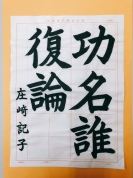 功名誰
復論
庄崎記子